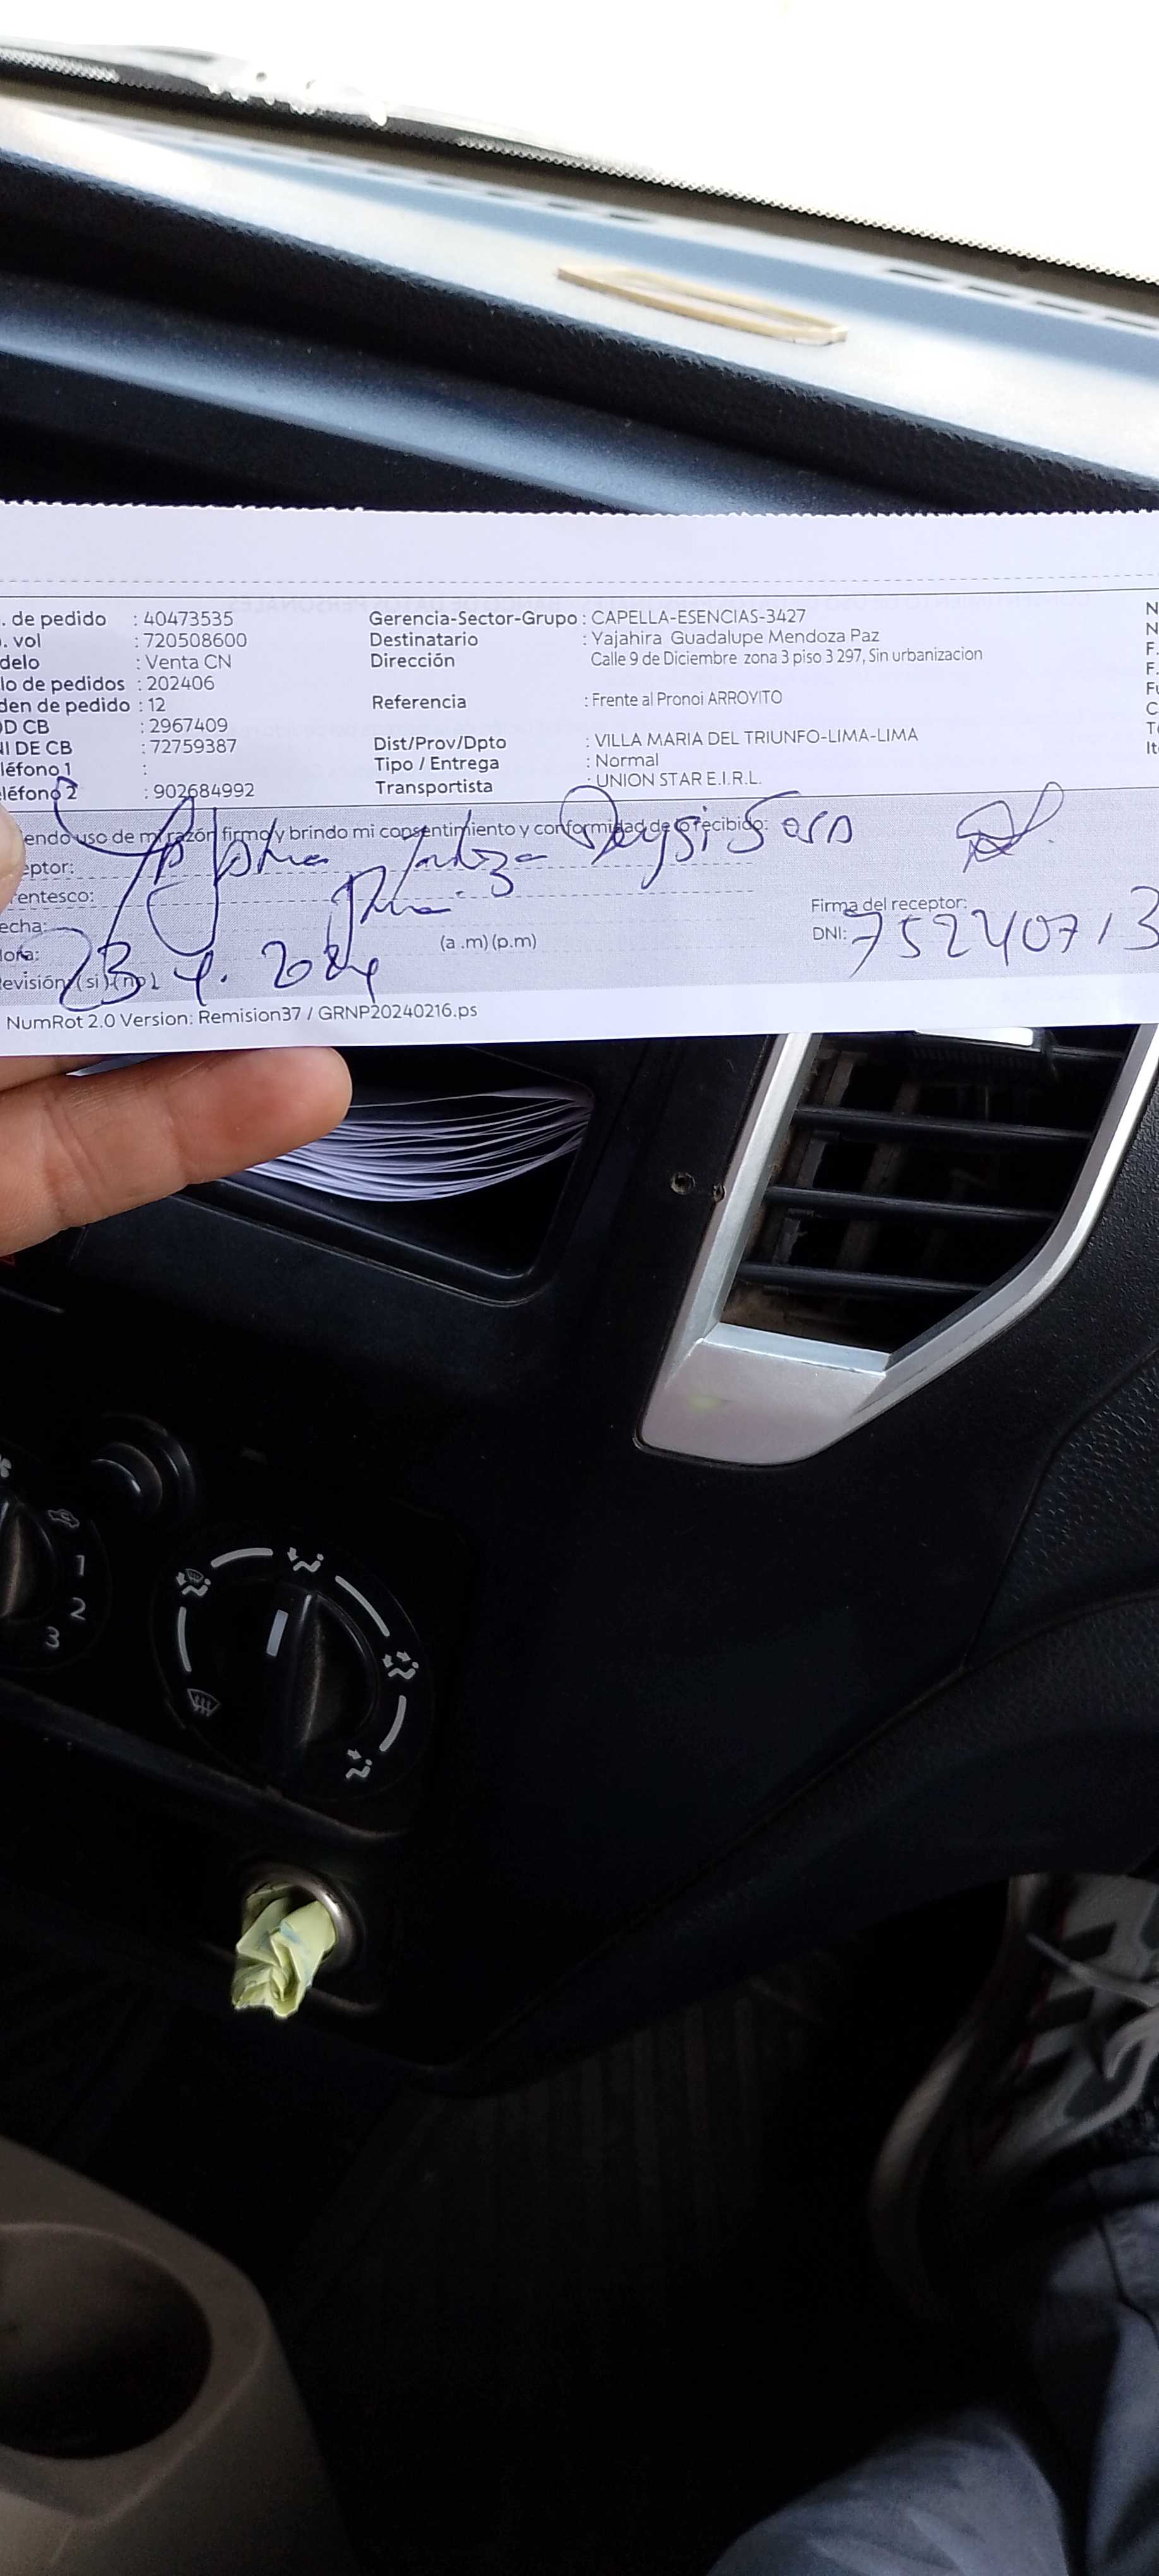 . de pedido : 40473535 Gerencia-Sector-Grupo : CAPELLA-ESENCIAS-3427 N
. vol : 720508600 Destinatario : Yajahira Guadalupe Mendoza Paz N
delo : Venta CN Dirección Calle 9 de Diciembre zona 3 piso 3 297, Sin urbanizacion F.
lo de pedidos : 202406 F.
den de pedido : 12 Referencia : Frente al Pronoi ARROYITO Fu
D CB : 2967409 C
NI DE CB : 72759387 Dist/Prov/Dpto : VILLA MARIA DEL TRIUNFO-LIMA-LIMA Te
léfono 1 : Tipo / Entrega : Normal Ite
léfono 2 : 902684992 Transportista : UNION STAR E.I.R.L.
endo uso de mi razón firmo y brindo mi consentimiento y conformidad de lo recibido:
eptor:
rentesco:
echa: Firma del receptor:
Hora: (a .m) (p.m) DNI: 75240713
evisión: (si) (no) 23 4. 2024
NumRot 2.0 Version: Remision37 / GRNP20240216.ps
1
2
3